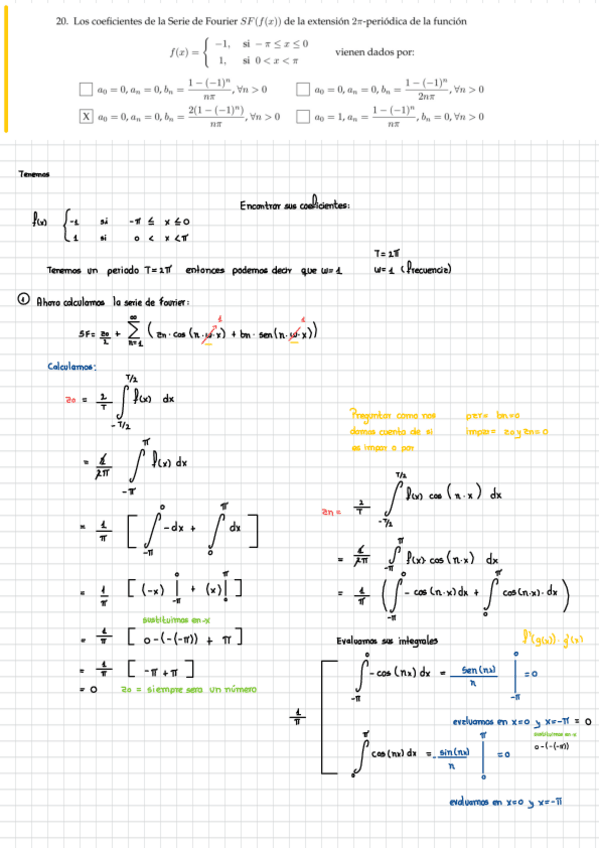 20. Los coeficientes de la Serie de Fourier SF(f(x)) de la extensión 2π-periódica de la función
f(x) = { -1, si -π ≤ x ≤ 0
1, si 0 < x < π
vienen dados por:
a₀ = 0, aₙ = 0, bₙ = (1 - (-1)ⁿ)/(nπ), ∀n > 0
a₀ = 0, aₙ = 0, bₙ = (1 - (-1)ⁿ)/(2nπ), ∀n > 0
X a₀ = 0, aₙ = 0, bₙ = 2(1 - (-1)ⁿ)/(nπ), ∀n > 0
a₀ = 1, aₙ = (1 - (-1)ⁿ)/(nπ), bₙ = 0, ∀n > 0
Tenemos
Encontrar sus coeficientes:
f(x) { -1 si -π ≤ x ≤ 0
1 si 0 < x < π
T = 2π
Tenemos un periodo T = 2π entonces podemos decir que ω = 1
ω = 1 (frecuencia)
① Ahora calculamos la serie de fourier:
1 1
SF = a₀/2 + ∑ₙ₌₁^∞ (an · cos(n·ω·x) + bn · sen(n·ω·x))
Calculamos:
a₀ = 2/T ∫_{-T/2}^{T/2} f(x) dx
= 2/2π ∫_{-π}^{π} f(x) dx
= 1/π [ ∫_{-π}^{0} -dx + ∫_{0}^{π} dx ]
= 1/π [ (-x) |_{-π}^{0} + (x) |_{0}^{π} ]
sustituimos en -x
= 1/π [ 0-(-(-π)) + π ]
= 1/π [ -π + π ]
= 0 a₀ = siempre sera un número
Preguntar como nos
damos cuenta de si
es impar o par
par = bn = 0
impar = a₀ y an = 0
an = 2/T ∫_{-T/2}^{T/2} f(x) cos(n·x) dx
= 2/2π ∫_{-π}^{π} f(x) cos(n·x) dx
= 1/π ( ∫_{-π}^{0} - cos(n·x) dx + ∫_{0}^{π} cos(n·x) · dx )
Evaluamos sus integrales
f'(g(x)) · g'(x)
1/π [ ∫_{-π}^{0} - cos(nx) dx = - sen(nx)/n |_{-π}^{0} = 0
evaluamos en x=0 y x=-π = 0
sustituimos en -x
0-(-(-π))
∫_{0}^{π} cos(nx) dx = - sin(nx)/n |_{0}^{π} = 0
evaluamos en x=0 y x=-π